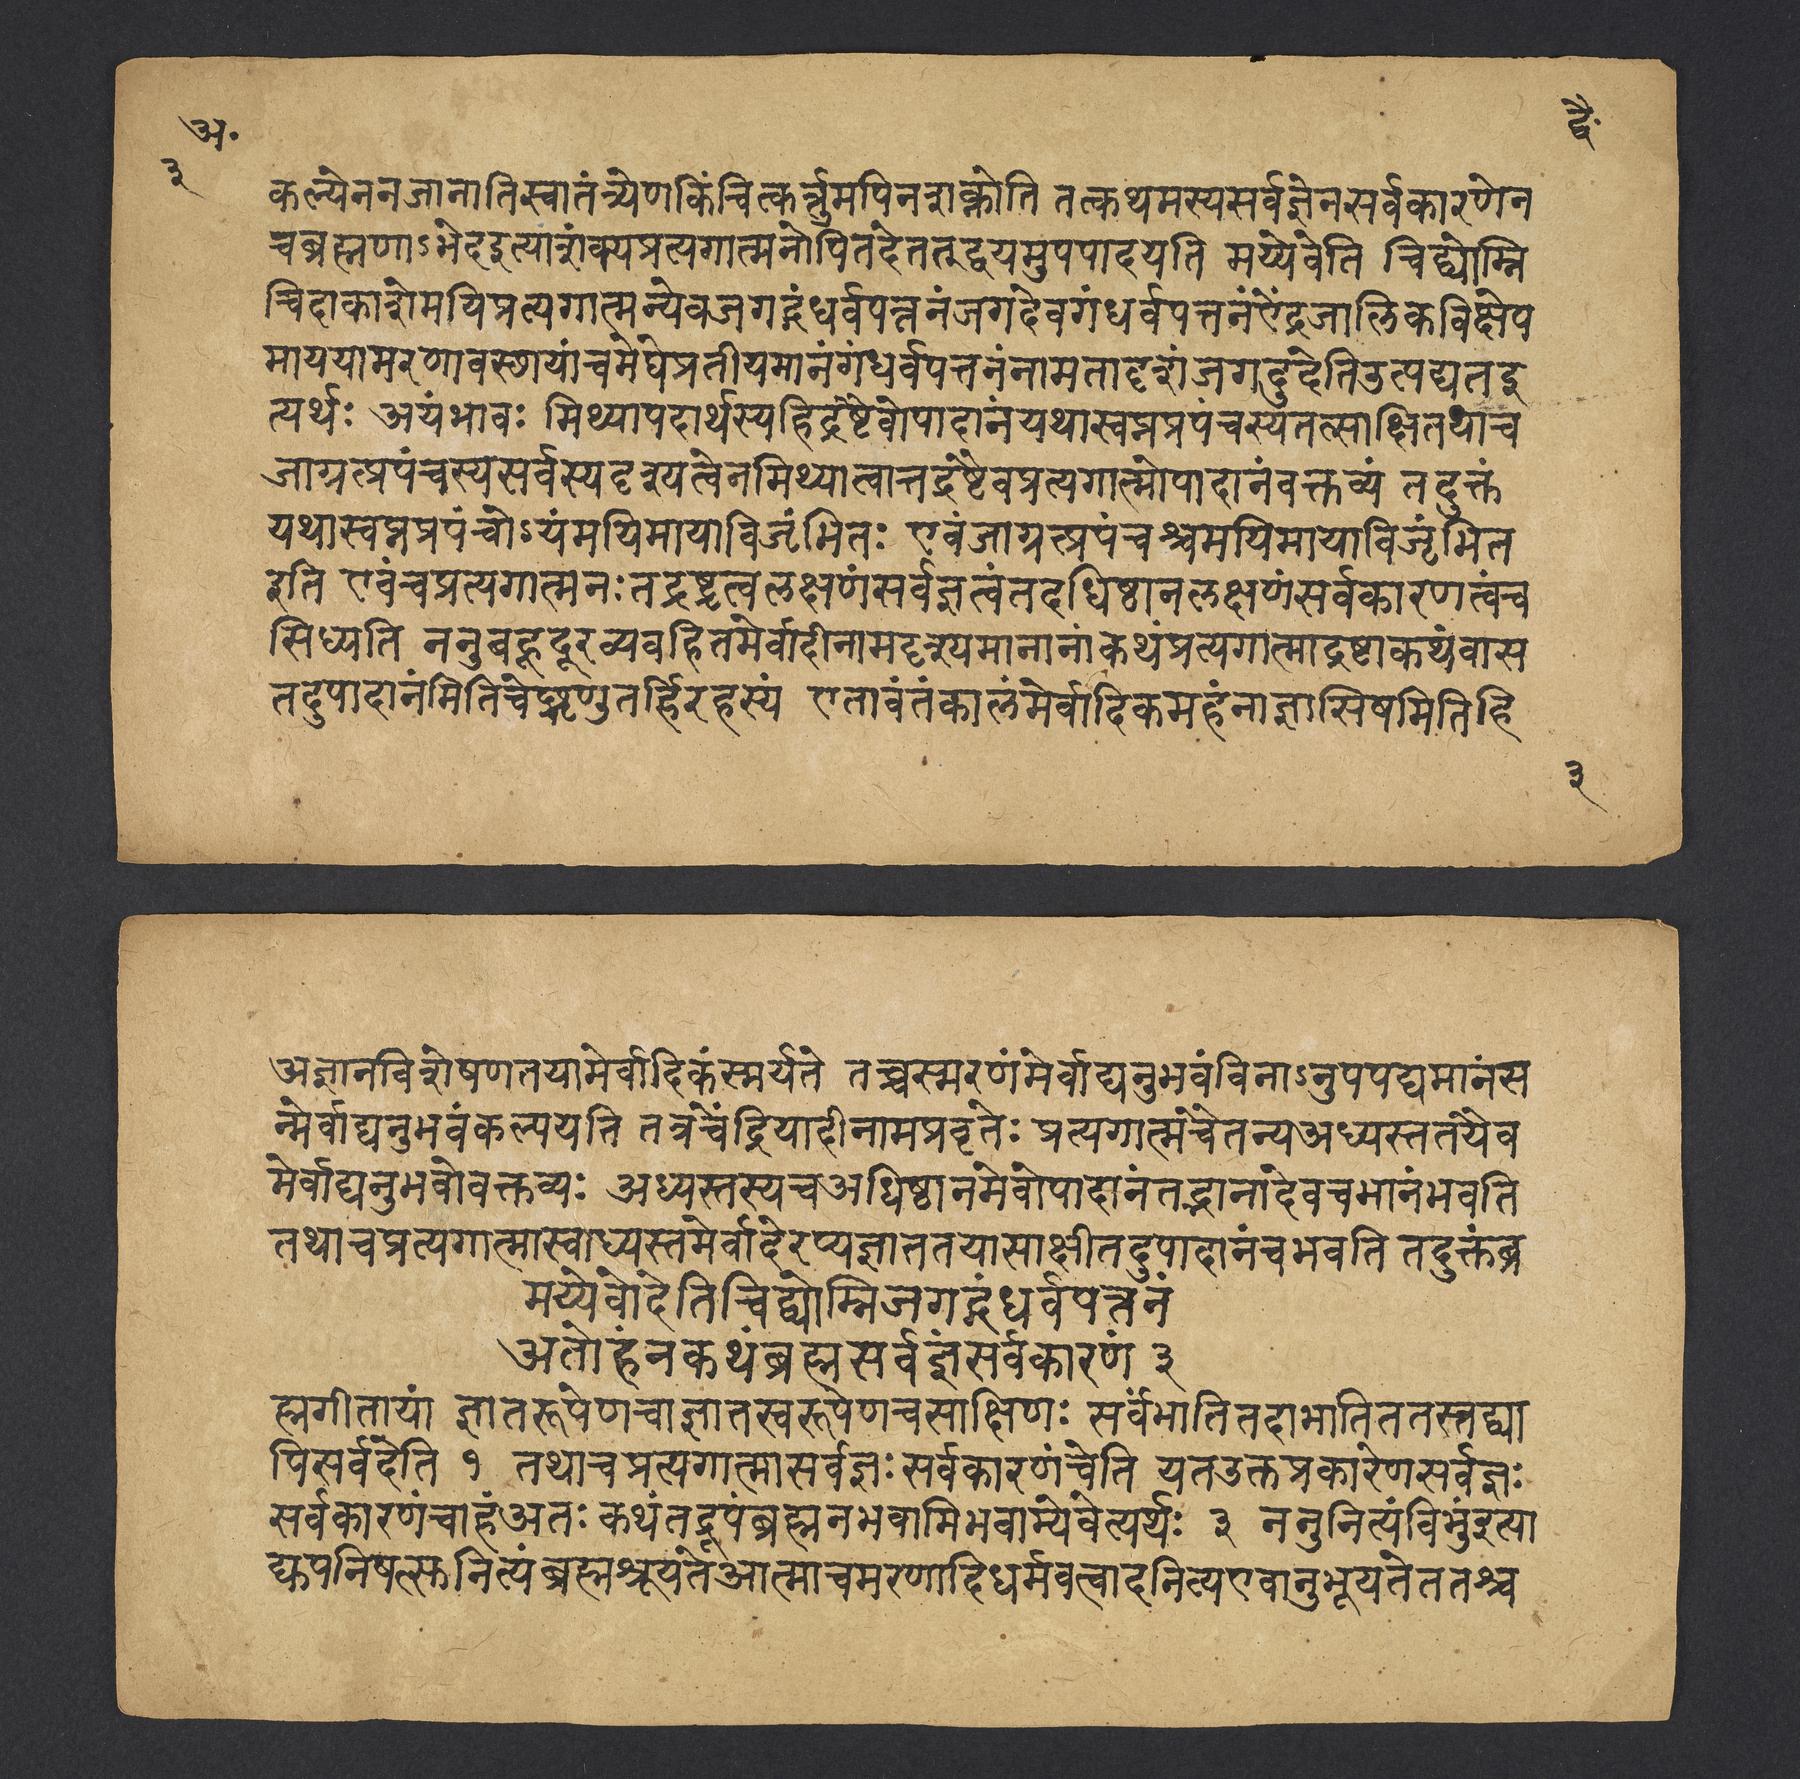 अ॰
द्वै॰
३
कल्येननजानातिस्वातंत्र्येणकिंचित्कर्त्तुमपिनशक्नोति तत्कथमस्यसर्वज्ञेनसर्वकारणेन
चब्रह्मणाऽभेदइत्याशंक्यप्रत्यगात्मनोपितदेतत्द्वयमुपपादयति मय्येवेति चिद्व्योम्नि
चिदाकाशेमयिप्रत्यगात्मन्येवजगद्गंधर्वपत्तनंजगदेवगंधर्वपत्तनंऐंद्रजालिकविक्षेप
माययामरणावस्छायांचमेघेप्रतीयमानंगंधर्वपत्तनंनामतादृशंजगदुदेतिउत्पद्यतइ
त्यर्थः अयंभावः मिथ्यापदार्थस्यहिद्रष्टैवोपादानंयथास्वप्नप्रपंचस्यतत्साक्षितथाच
जाग्रत्प्रपंचस्यसर्वस्यदृश्यत्वेनमिथ्यात्वात्तद्रष्टैवप्रत्यगात्मोपादानंवक्तव्यं तदुक्तं
यथास्वप्नप्रपंचोऽयंमयिमायाविजृंभितः एवंजाग्रत्प्रपंचश्चमयिमायाविजृंभित
इति एवंचप्रत्यगात्मनःतद्रष्टृत्वलक्षणंसर्वज्ञत्वंतदधिष्ठानलक्षणंसर्वकारणत्वंच
सिध्यति ननुबहूदूरव्यवहितमेर्वादीनामदृश्यमानानांकथंप्रत्यगात्माद्रष्टाकथंवास
तदुपादानंमितिचेच्छृणुतर्हिरहस्यं एतावंतंकालंमेर्वादिकमहंनाज्ञासिषमितिहि
३
अज्ञानविशेषणतयामेर्वादिकंस्मर्यते तच्चस्मरणंमेर्वाद्यनुभवंविनाऽनुपपद्यमानंस
न्मेर्वाद्यनुभवंकल्पयति तत्रचेंद्रियादीनामप्रवृतेः प्रत्यगात्मचैतन्यअध्यस्ततयैव
मेर्वाद्यनुभवोवक्तव्यः अध्यस्तस्यचअधिष्ठानमेवोपादानंतद्भानादेवचभानंभवति
तथाचप्रत्यगात्मास्वाध्यस्तमेर्वादेरप्यज्ञाततयासाक्षीतदुपादानंचभवति तदुक्तंब्र
मय्येवोदेतिचिद्व्योम्निजगद्गंधर्वपत्तनं
अतोहंनकथंब्रह्मसर्वज्ञंसर्वकारणं ३
ह्मगीतायां ज्ञातरूपेणचाज्ञातस्वरूपेणचसाक्षिणः सर्वंभातितदाभातिततस्तद्व्या
पिसर्वदेति १ तथाचप्रत्यगात्मासर्वज्ञःसर्वकारणंचेति यतउक्तप्रकारेणसर्वज्ञः
सर्वकारणंचाहंअतःकथंतद्रूपंब्रह्मनभवामिभवाम्येवेत्यर्थः ३ ननुनित्यंविभुंइत्या
द्युपनिषत्सुनित्यंब्रह्मश्रूयतेआत्माचमरणादिधर्मवत्वादनित्यएवानुभूयतेततश्च